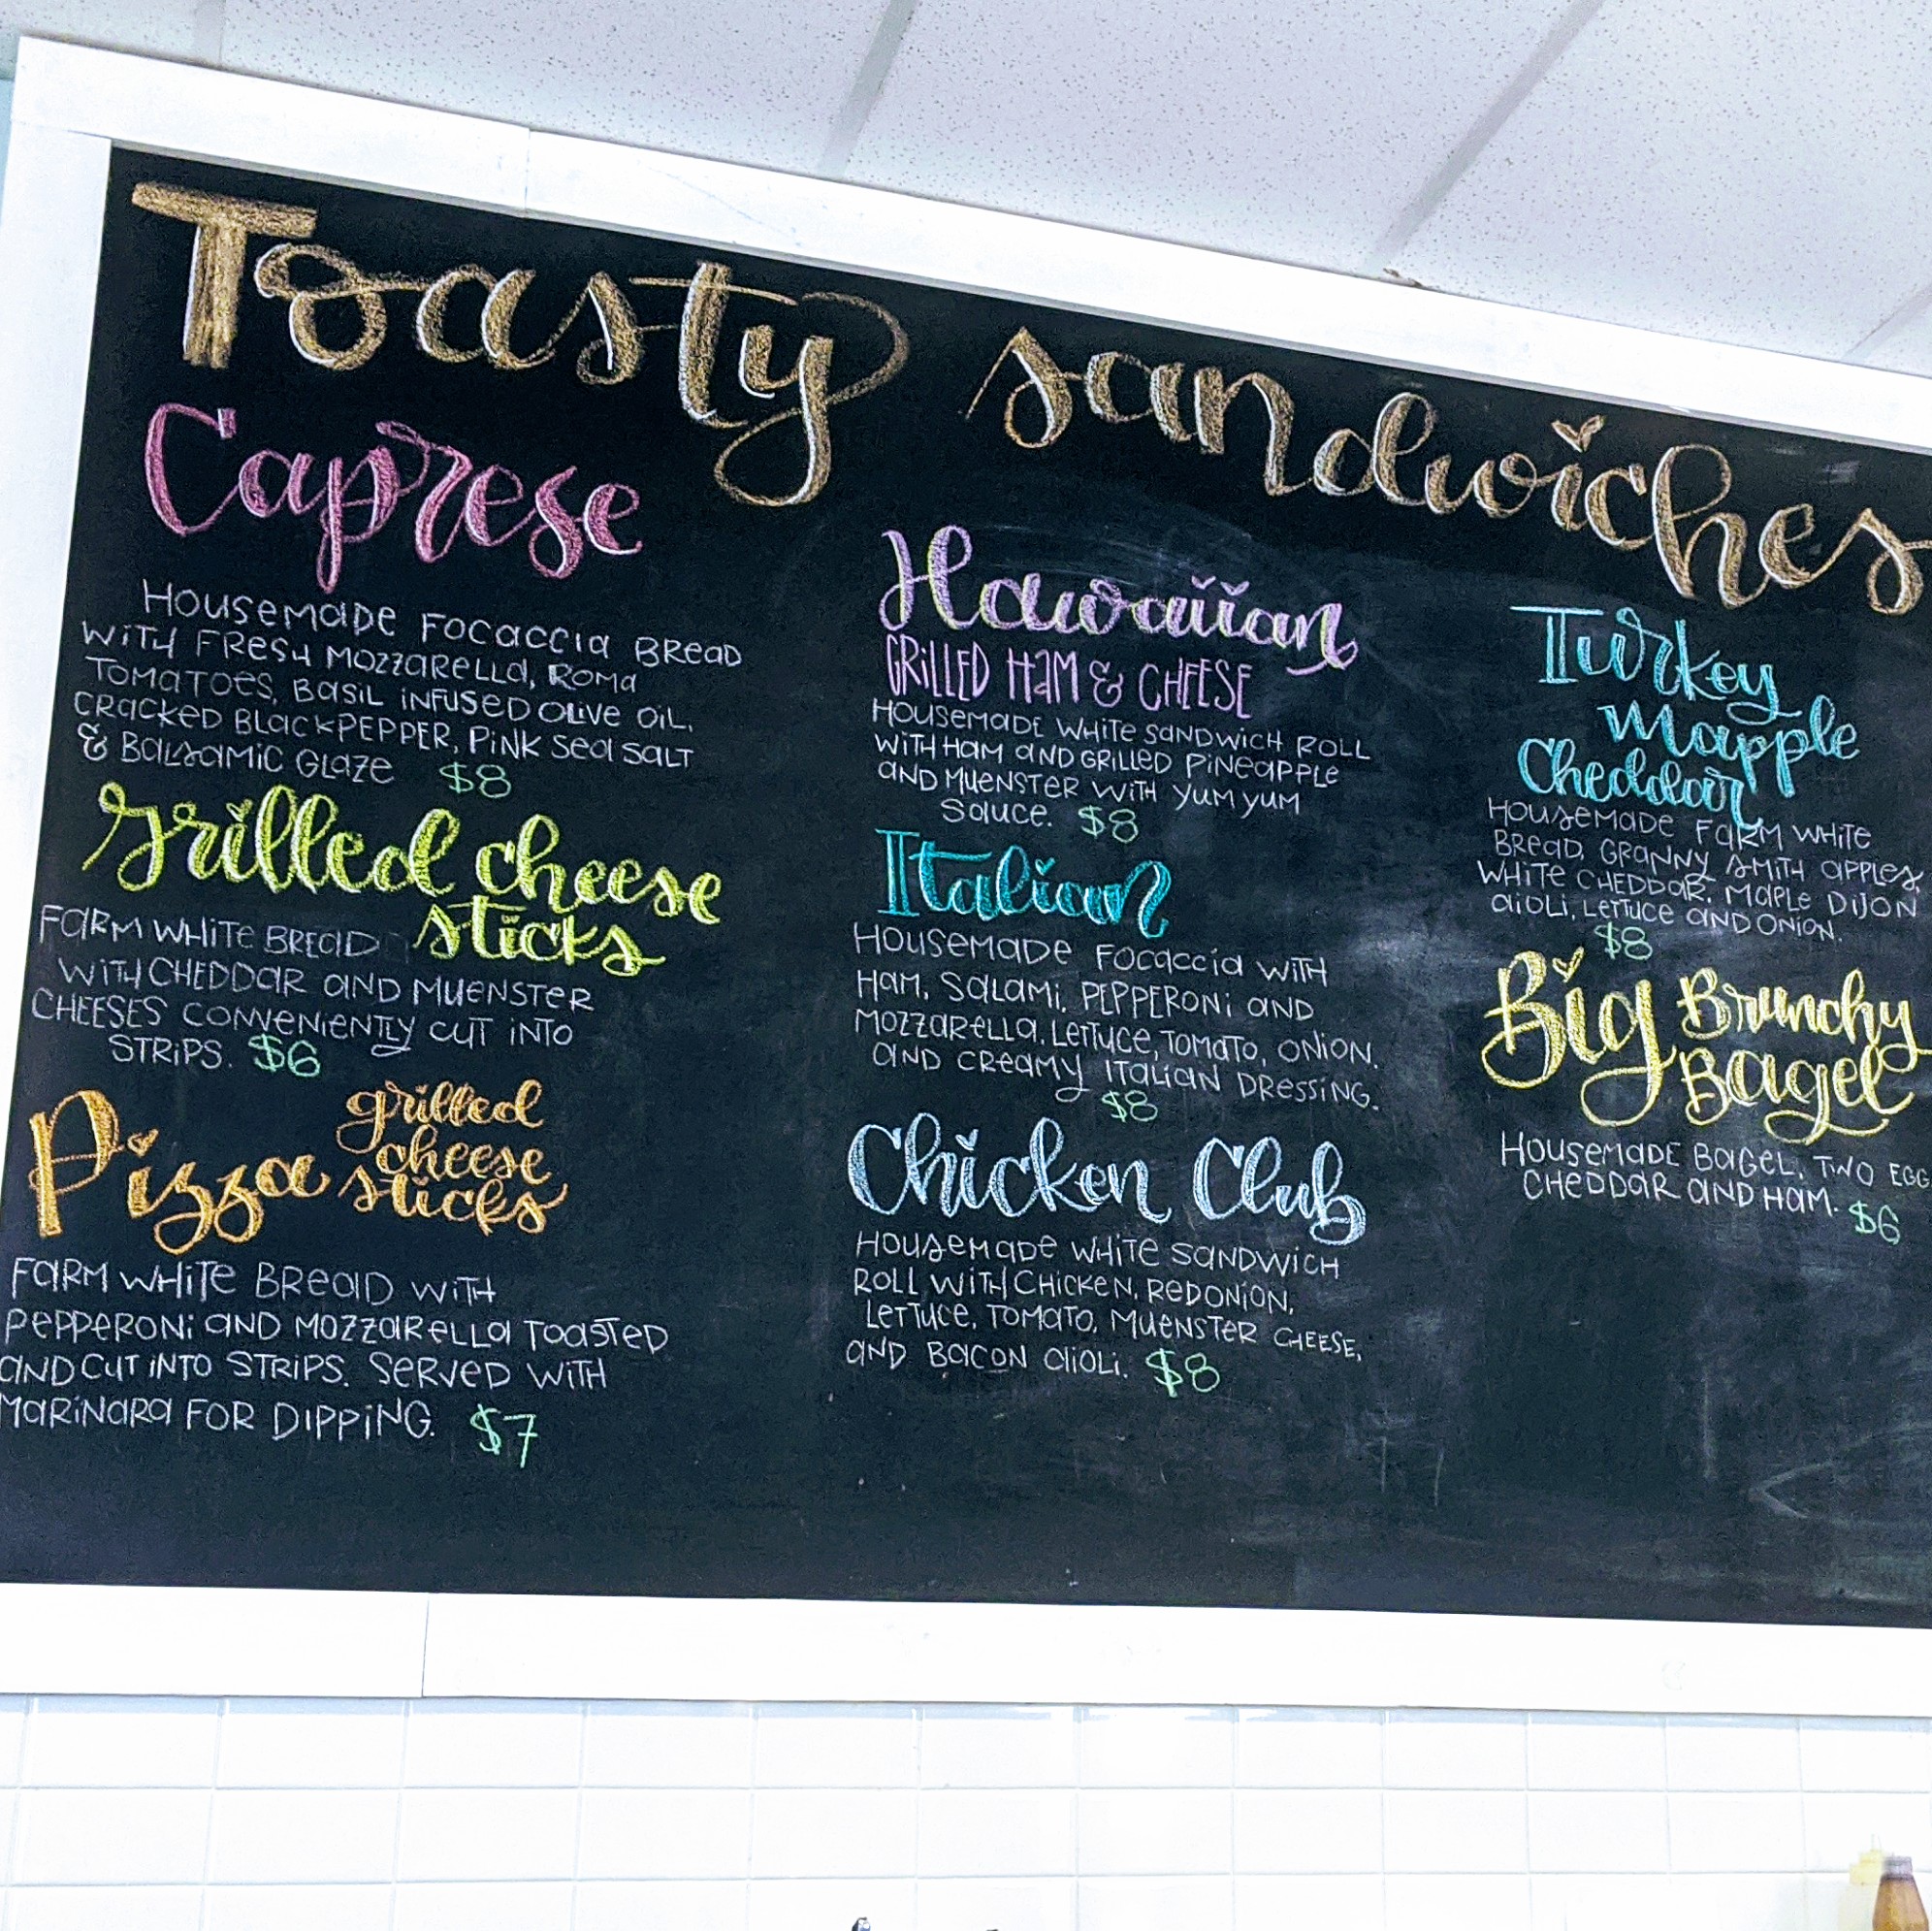 Toasty sandwiches
Caprese
HOUSEMADE FOCACCIA BREAD
WITH FRESH MOZZARELLA, ROMA
TOMATOES, BASIL INFUSED OLIVE OIL,
CRACKED BLACK PEPPER, PINK SEA SALT
& BALSAMIC GLAZE $8
grilled cheese
sticks
FARM WHITE BREAD
WITH CHEDDAR AND MUENSTER
CHEESES CONVENIENTLY CUT INTO
STRIPS. $6
Pizza grilled
cheese
sticks
FARM WHITE BREAD WITH
PEPPERONI AND MOZZARELLA TOASTED
AND CUT INTO STRIPS. SERVED WITH
MARINARA FOR DIPPING. $7
Hawaiian
GRILLED HAM & CHEESE
HOUSEMADE WHITE SANDWICH ROLL
WITH HAM AND GRILLED PINEAPPLE
AND MUENSTER WITH YUM YUM
SAUCE. $8
Italian
HOUSEMADE FOCACCIA WITH
HAM, SALAMI, PEPPERONI AND
MOZZARELLA, LETTUCE, TOMATO, ONION.
AND CREAMY ITALIAN DRESSING.
$8
Chicken Club
HOUSEMADE WHITE SANDWICH
ROLL WITH CHICKEN, RED ONION,
LETTUCE, TOMATO, MUENSTER CHEESE,
AND BACON AIOLI. $8
Turkey
Mapple
Cheddar
HOUSEMADE FARM WHITE
BREAD, GRANNY SMITH APPLES,
WHITE CHEDDAR, MAPLE DIJON
AIOLI, LETTUCE AND ONION.
$8
Big Brunchy
Bagel
HOUSEMADE BAGEL, TWO EGG
CHEDDAR AND HAM. $6